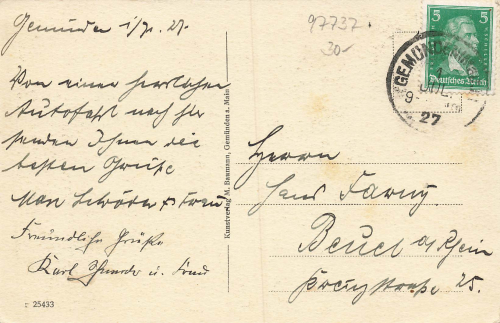 Gemünden 1/7. 27.
Von einer herrlichen
Autofahrt nach hier
senden Ihnen die
besten Grüße
Max Schröder & Frau
Freundliche Grüße
Karl u. Frau
Kunstverlag M. Baumann, Gemünden a. Main
r 25433
97737
30-
5 5
Deutsches Reich
GEMÜNDEN
27
Herrn
Hans Farny
Beuel a/Rhein
Kreuzstraße 25.